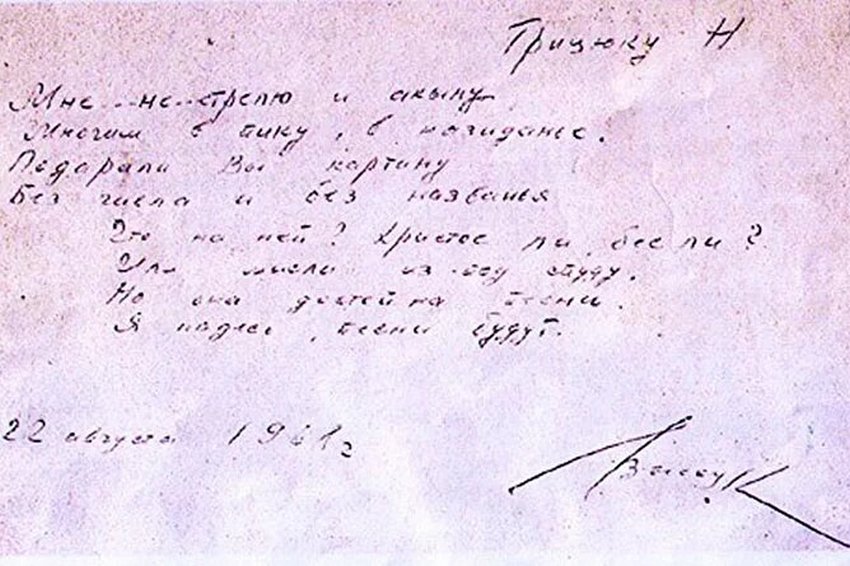 Грицюку Н
Мне не стрелю и акыну
Многим в пику, в назиданье.
Подарили Вы картину
Без числа и без названья
Что на ней? Христос ли, бес ли?
Или мысли из-под спуду.
Но она достойна песни.
Я надеюсь, песни будут.
22 августа 1968 г
Высоц